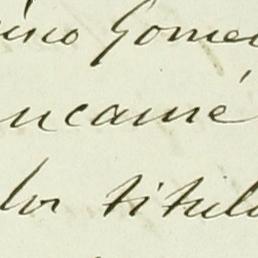 ino Gome
ncamé
los titul